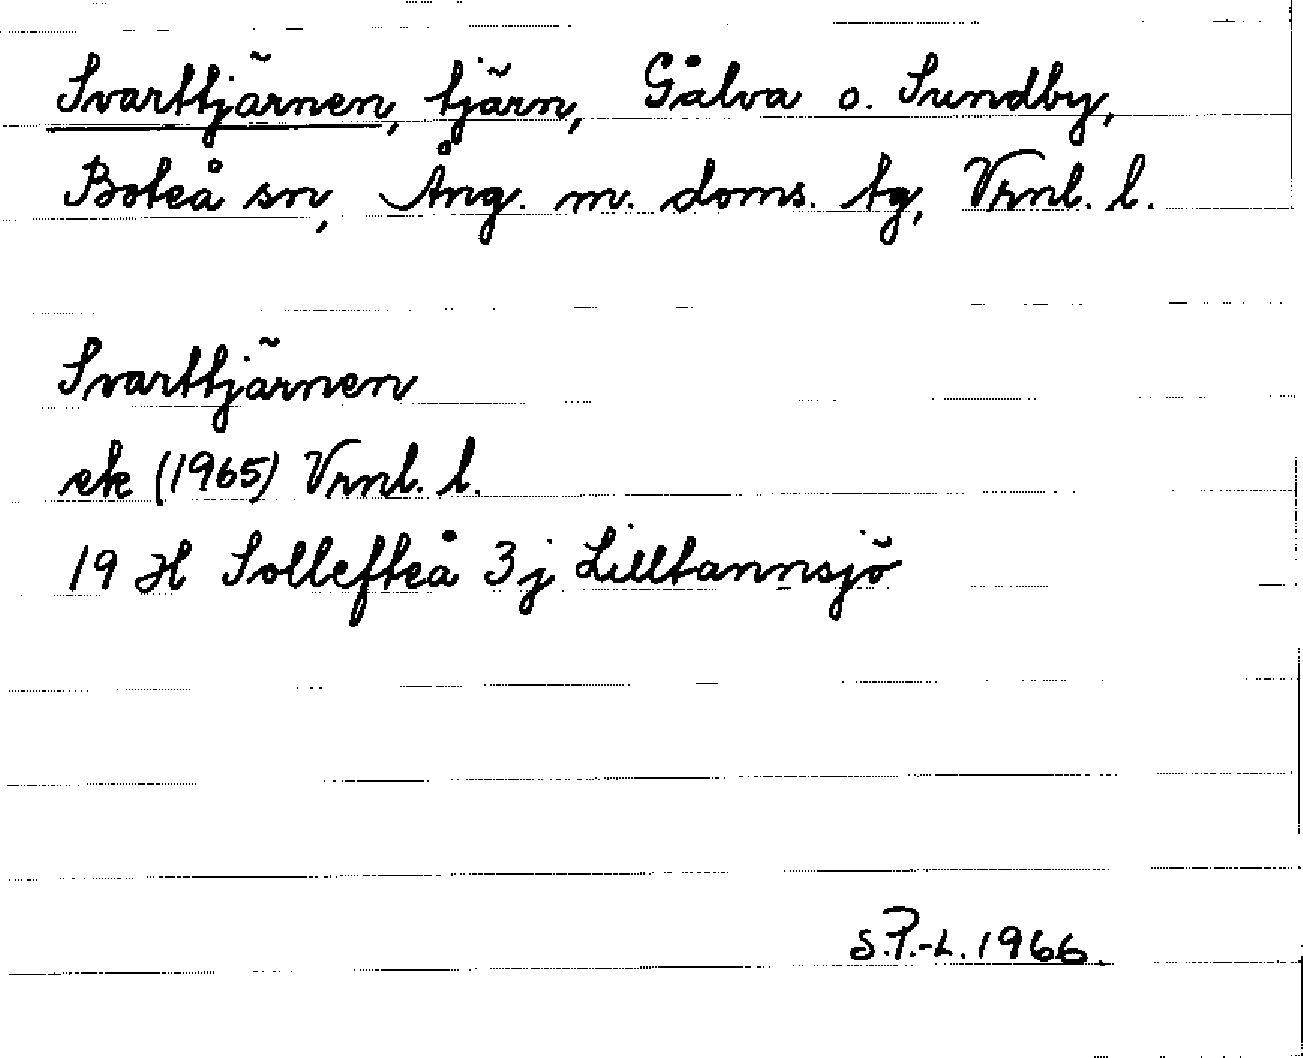 Svarttjärnen, tjärn, Gålva o. Sundby,
Boteå sn, Ång. m. doms. tg, Vrnl. l.
Svarttjärnen
ek (1965) Vrnl. l.
19 H Sollefteå 3j Lilltannsjö
S.P.-L. 1966.